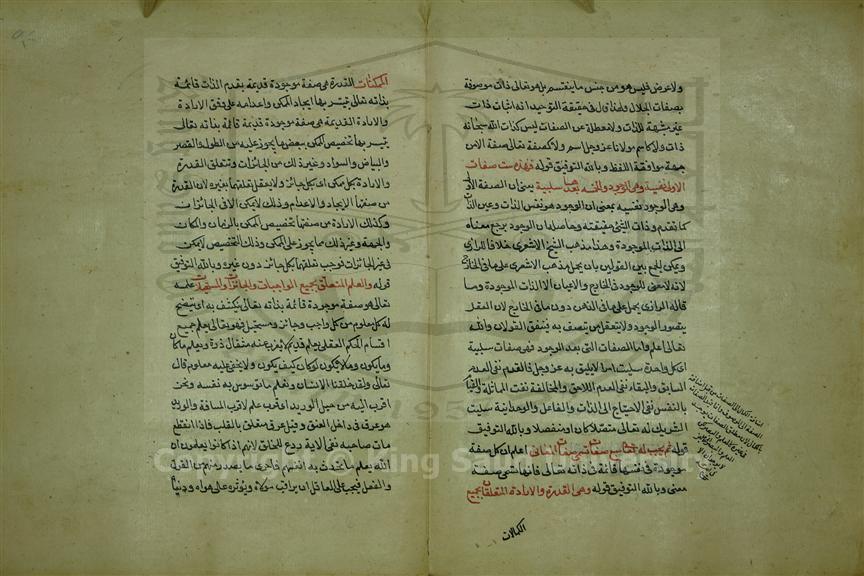 ولا عرض فليس هو من جنس ما ينقسم بل هو تعالى ذات موصوفة
بصفات الجلال ولهذا قال في حقيقة التوحيد انه اثبات ذات
غير مشبهة للذات ولا معطلة عن الصفات ليس كذات الله سبحانه
ذات ولا كاسم مولانا عز وجل اسم ولا كصفة تعالى صفة الا من
جهة موافقة اللفظ وبالله التوفيق قوله فهذه ست صفات
الاولى نفسية وهى الوجود والخمسة بعدها سلبية يعنى ان الصفة الاولى
وهى الوجود نفسية بمعنى ان الوجود هو نفس الذات وعين الذات
كما تقدم وذات الشئ حقيقته وحاصله ان الوجود يرجع معناه
الى الذات الموجودة وهذا مذهب الشيخ الاشعرى خلافا للرازى
ويمكن الجمع بين القولين بان يحمل مذهب الاشعرى على ما فى الخارج
لانه لا معنى للوجود فى الخارج والاعيان الا الذات الموجودة وما
قاله الرازى يحمل على ما فى الذهن دون ما فى الخارج لان العقل
يتصور الوجود ولا يتعقل من تصف به فيتفق القولان والله
تعالى اعلم واما الصفات التى بعد الوجود فهى صفات سلبية
اى كل واحدة سلبت امرا لا يليق به عز وجل فالقدم نفى العدم
السابق والبقاء نفى العدم اللاحق والمخالفة نفت المماثلة والقيام
بالنفس نفى الاحتياج الى الذات والفاعل والوحدانية سلبت
الشريك له تعالى متصلا كان او منفصلا وبالله التوفيق
قوله ثم يجب له تعالى سبع صفات تسمى صفات المعانى اعلم ان كل صفة
موجودة فى نفسها قائمة بذاته تعالى فانها تسمى صفة
معنى وبالله التوفيق قوله وهى القدرة والارادة المتعلقتان بجميع
الممكنات
الممكنات القدرة هى صفة موجودة قديمة بقدم الذات قائمة
بذاته تعالى يتيسر بها ايجاد الممكن واعدامه على وفق الارادة
والارادة القديمة هى صفة موجودة قديمة قائمة بذاته تعالى
يتيسر بها تخصيص الممكن ببعض ما يجوز عليه من الطول والقصر
والبياض والسواد وغير ذلك من الجائزات وتتعلق القدرة
والارادة بكل ممكن اى بكل جائز ولا يعقل تعلقهما بغيره لان القدرة
من صفتها الايجاد والاعدام وذلك لا يمكن الا فى الجائزات
وكذلك الارادة من صفتها تخصيص الممكن بالزمان والمكان
والجهة وغير ذلك مما يجوز على الممكن وذلك التخصيص لا يمكن
فى غير الجائزات فوجب تعلقهما بكل جائز دون غيره وبالله التوفيق
قوله والعلم المتعلق بجميع الواجبات والجائزات والمستحيلات علمه
تعالى هو صفة موجودة قائمة بذاته تعالى يكشف به او يتضح
له كل معلوم من كل واجب وجائز ومستحيل فهو تعالى يعلم جميع
اقسام الحكم العقلى بعلم قديم لا يعزب عنه مثقال ذرة ويعلم ما كان
وما يكون وما لا يكون لو كان كيف يكون ولا يخفى عليه معلوم قال
تعالى ولقد خلقنا الانسان ونعلم ما توسوس به نفسه ونحن
اقرب اليه من حبل الوريد اى قرب علم لا قرب المسافة والوريد
هو عرق فى داخل العنق وقيل عرق معلق بالقلب فاذا انقطع
مات صاحبه ففى الاية ردع للخلق لانهم اذا كانوا يعلمون ان
الله يعلم ما تحدث به انفسهم فاحرى ما يصدر منهم من القول
والفعل فيجب على العاقل ان يراقب مولاه ويؤثره على هواه ودنياه